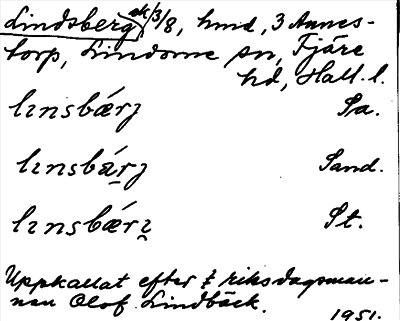 Lindsberg, ek. 1/3/8, hmd, 3 Annes-
torp, Lindome sn, Fjäre
hd, Hall. l.
lınsbærj Sa.
lınsbärj Sand.
lınsbærı St.
Uppkallat efter f riksdagsman-
nen Olof Lindbäck.
1951.